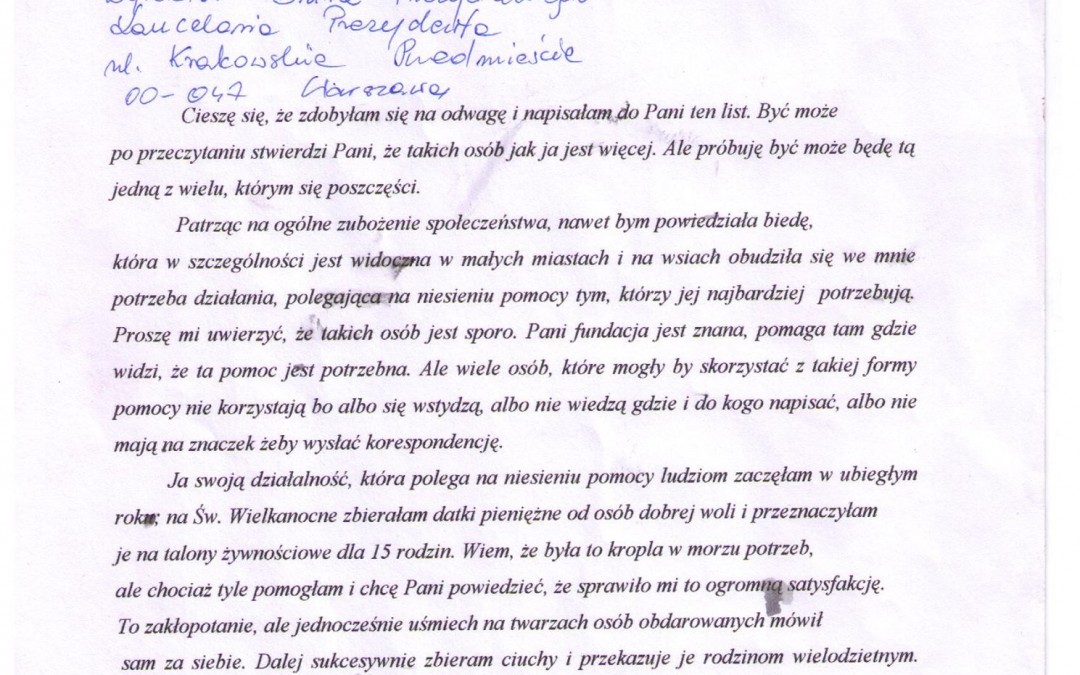 Kancelaria Prezydenta
ul. Krakowskie Przedmieście
00-047 Warszawa
Cieszę się, że zdobyłam się na odwagę i napisałam do Pani ten list. Być może
po przeczytaniu stwierdzi Pani, że takich osób jak ja jest więcej. Ale próbuję być może będę tą
jedną z wielu, którym się poszczęści.
Patrząc na ogólne zubożenie społeczeństwa, nawet bym powiedziała biedę,
która w szczególności jest widoczna w małych miastach i na wsiach obudziła się we mnie
potrzeba działania, polegająca na niesieniu pomocy tym, którzy jej najbardziej potrzebują.
Proszę mi uwierzyć, że takich osób jest sporo. Pani fundacja jest znana, pomaga tam gdzie
widzi, że ta pomoc jest potrzebna. Ale wiele osób, które mogły by skorzystać z takiej formy
pomocy nie korzystają bo albo się wstydzą, albo nie wiedzą gdzie i do kogo napisać, albo nie
mają na znaczek żeby wysłać korespondencję.
Ja swoją działalność, która polega na niesieniu pomocy ludziom zaczęłam w ubiegłym
roku; na Św. Wielkanocne zbierałam datki pieniężne od osób dobrej woli i przeznaczyłam
je na talony żywnościowe dla 15 rodzin. Wiem, że była to kropla w morzu potrzeb,
ale chociaż tyle pomogłam i chcę Pani powiedzieć, że sprawiło mi to ogromną satysfakcję.
To zakłopotanie, ale jednocześnie uśmiech na twarzach osób obdarowanych mówił
sam za siebie. Dalej sukcesywnie zbieram ciuchy i przekazuje je rodzinom wielodzietnym.